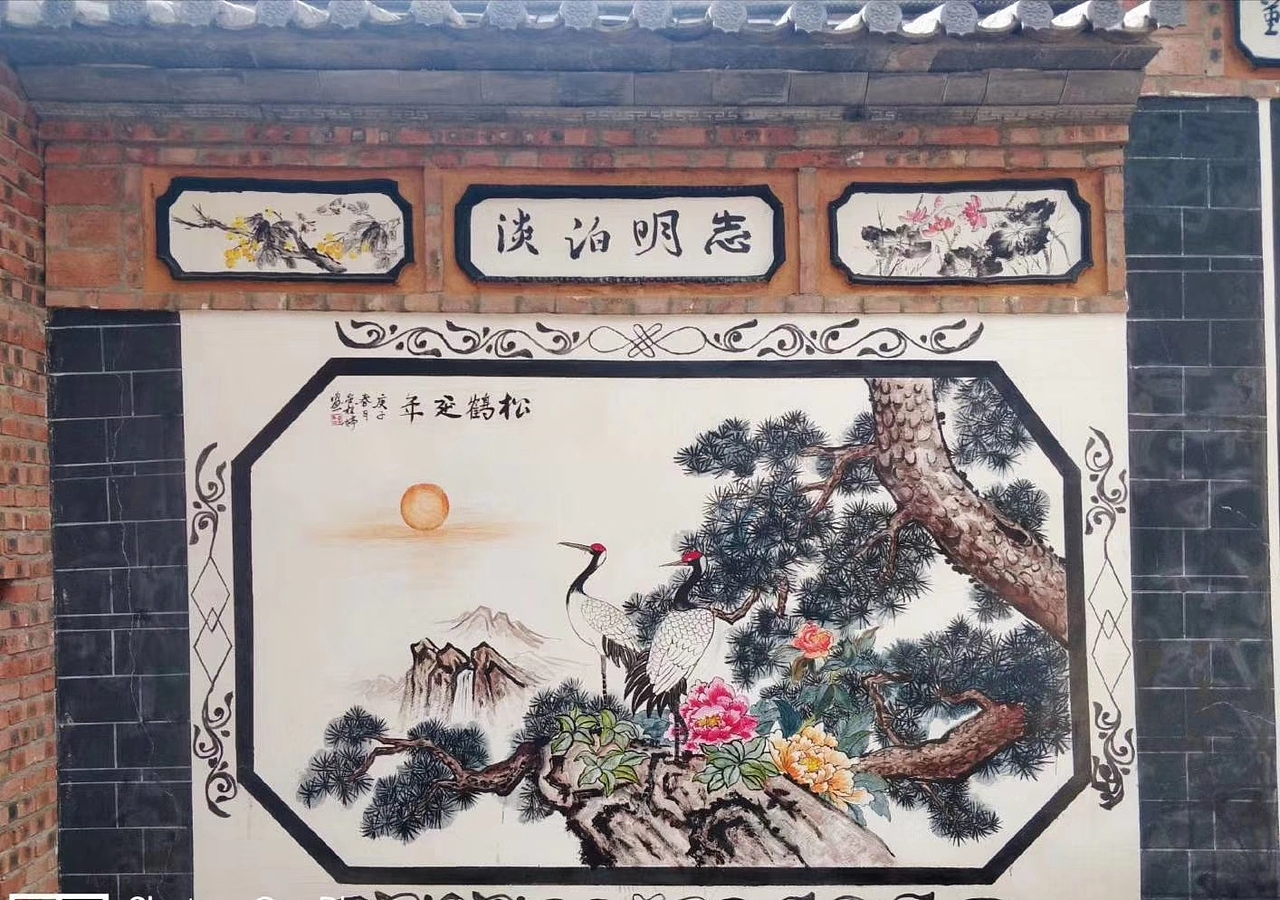 淡泊明志
松鶴延年
庚子
春月